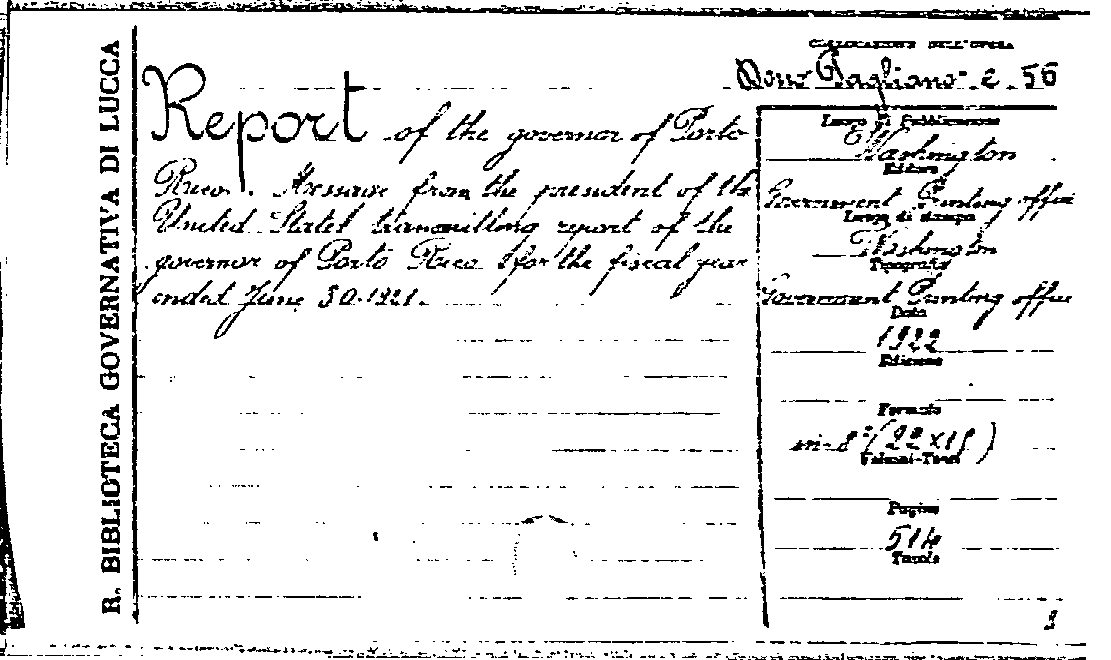 R. BIBLIOTECA GOVERNATIVA DI LUCCA
COLLOCAZIONE DELL'OPERA
Dono Pagliano 2. 56
Report of the governor of Porto
Rico. Message from the president of the
United States transmitting report of the
governor of Porto Rico for the fiscal year
ended June 30.1921.
Luogo di Pubblicazione
Washington
Editore
Government Printing office
Luogo di stampa
Washington
Tipografia
Government Printing office
Data
1922
Edizione
Formato
in-8°(22×15)
Volumi-Tomi
Pagine
514
Tavole